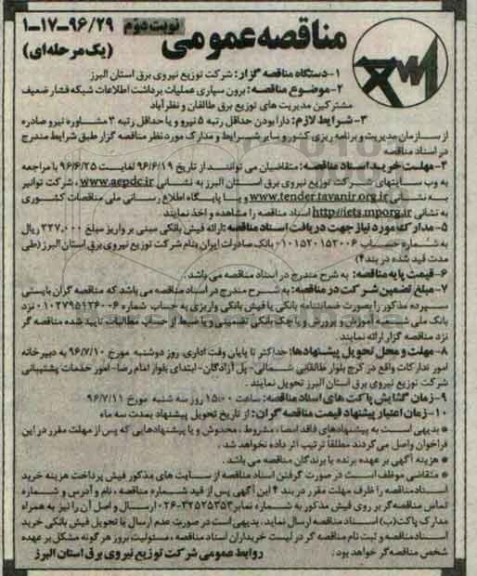 مناقصه عمومی
نوبت دوم ۱-۱۷-۹۶/۲۹
(یک مرحله‌ای)
۱-دستگاه مناقصه گزار: شرکت توزیع نیروی برق استان البرز
۲-موضوع مناقصه: برون سپاری عملیات برداشت اطلاعات شبکه فشار ضعیف
مشترکین مدیریت های توزیع برق طالقان و نظرآباد
۳-شرایط لازم: دارا بودن حداقل رتبه ۵ نیرو و یا حداقل رتبه ۳ مشاوره نیرو صادره
از سازمان مدیریت و برنامه ریزی کشور و سایر شرایط و مدارک مورد نظر مناقصه گزار طبق شرایط مندرج
در اسناد مناقصه
۴-مهلت خرید اسناد مناقصه: متقاضیان می توانند از تاریخ ۹۶/۶/۱۹ لغایت ۹۶/۶/۲۵ با مراجعه
به وب سایتهای شرکت توزیع نیروی برق استان البرز به نشانی www.aepdc.ir، شرکت توانیر
به نشانی www.tender.tavanir.org.ir و یا پایگاه اطلاع رسانی ملی مناقصات کشوری
به نشانی http//iets.mporg.ir اسناد مناقصه را مشاهده و اخذ نمایند
۵-مدارک مورد نیاز جهت دریافت اسناد مناقصه: ارائه فیش بانکی مبنی بر واریز مبلغ ۳۲۷،۰۰۰ ریال
به شماره حساب ۰۱۰۱۵۲۰۱۵۲۰۰۶ بانک صادرات ایران بنام شرکت توزیع نیروی برق استان البرز (طی
مدت قید شده در بند ۴)
۶-قیمت پایه مناقصه: به شرح مندرج در اسناد مناقصه می باشد.
۷-مبلغ تضمین شرکت در مناقصه: به شرح مندرج در اسناد مناقصه می باشد که مناقصه گران بایستی
سپرده مذکور را بصورت ضمانتنامه بانکی یا فیش بانکی واریزی به حساب شماره ۰۱۰۲۷۹۵۱۲۶۰۰۶ نزد
بانک ملی شعبه آموزش و پرورش و یا چک بانکی تضمینی و یا ضبط از حساب مطالبات تایید شده مناقصه گر
نزد مناقصه گزار ارائه نمایند.
۸-مهلت و محل تحویل پیشنهادها: حداکثر تا پایان وقت اداری، روز دوشنبه مورخ ۹۶/۷/۱۰ به دبیرخانه
امور تدارکات واقع در کرج بلوار طالقانی شمالی- پل آزادگان- ابتدای بلوار امام رضا- امور خدمات پشتیبانی
شرکت توزیع نیروی برق استان البرز تحویل نمایند.
۹-زمان گشایش پاکت های اسناد مناقصه: ساعت ۱۵:۰۰ روز سه شنبه مورخ ۹۶/۷/۱۱
۱۰-زمان اعتبار پیشنهاد قیمت مناقصه گران: از تاریخ تحویل پیشنهاد بمدت سه ماه
* بدیهی است به پیشنهادهای فاقد امضا، مشروط، مخدوش و یا پیشنهادهایی که پس از مهلت مقرر در این
فراخوان واصل می گردند مطلقا ترتیب اثر داده نخواهد شد.
* هزینه آگهی بر عهده برنده یا برندگان مناقصه می باشد.
* متقاضی موظف است در صورت گرفتن اسناد مناقصه از سایت های مذکور فیش پرداخت هزینه خرید
اسناد مناقصه را ظرف مهلت مقرر در بند ۴ این آگهی پس از قید شماره مناقصه، نام و آدرس و شماره
تماس مناقصه گر بر روی فیش مذکور به شماره نمابر ۰۲۶-۳۲۵۲۵۳۵۳ ارسال و اصل آن را نیز به همراه
مدارک پاکت (ب) اسناد مناقصه ارسال نماید، بدیهی است در صورت عدم ارسال یا تحویل فیش بانکی خرید
اسناد مناقصه و ثبت نام مناقصه گر در لیست خریداران اسناد مناقصه، مسئولیت بروز هرگونه مشکل بر عهده
شخص مناقصه گر خواهد بود.
روابط عمومی شرکت توزیع نیروی برق استان البرز